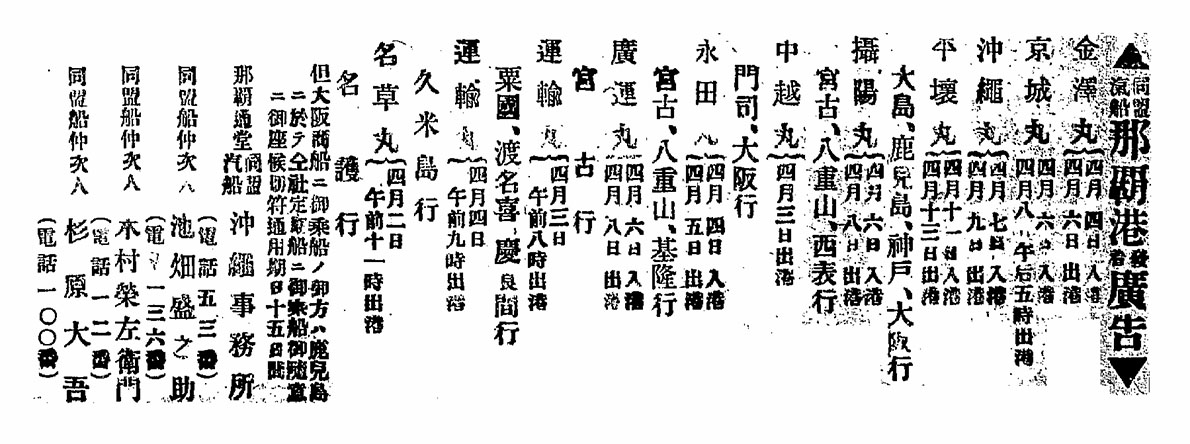 ▲同盟汽船那覇港發着廣告▼
金澤丸 四月四日入港
四月六日出港
京城丸 四月六日入港
四月八日午后五時出港
沖繩丸 四月七日入港
四月九日出港
平壤丸 四月十一日入港
四月十三日出港
大島、鹿兒島、神戸、大阪行
攝陽丸 四月六日入港
四月八日出港
宮古、八重山、西表行
中越丸 四月三日出港
門司、大阪行
永田丸 四月四日入港
四月五日出港
宮古、八重山、基隆行
廣運丸 四月六日入港
四月八日出港
宮古行
運輸丸 四月三日
午前八時出港
粟國、渡名喜、慶良間行
運輸丸 四月四日
午前九時出港
久米島行
名草丸 四月二日
午前十一時出港
名護行
但大阪商船ニ御乘船ノ御方ハ鹿兒島
ニ於テ仝社定期船ニ御乘船御隨意
ニ御座候切符通用期日十五日間
那覇通堂 同盟汽船 沖繩事務所
(電話五三番)
同盟船仲次人 池畑盛之助
(電話一三六番)
同盟船仲次人 木村榮左衛門
(電話一二番)
同盟船仲次人 杉原大吾
(電話一〇〇番)